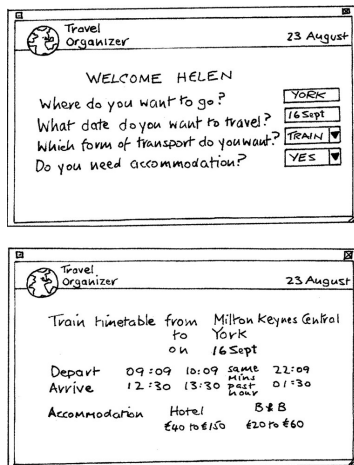 Travel
Organizer
23 August
WELCOME HELEN
Where do you want to go? YORK
What date do you want to travel? 16 Sept
Which form of transport do you want? TRAIN
Do you need accommodation? YES
Travel
Organizer
23 August
Train timetable from Milton Keynes Central
to York
on 16 Sept
Depart 09:09 10:09 same 22:09
mins
Arrive 12:30 13:30 past 01:30
hour
Accommodation Hotel B&B
£40 to £150 £20 to £60